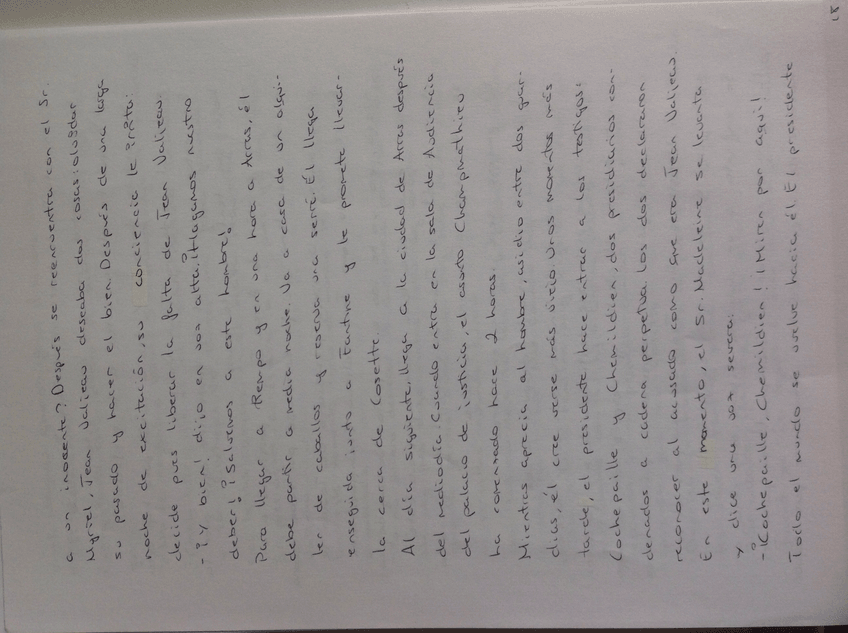 a un inosente? Después se reencuentra con el Sr.
Myriel, Jean Valieau deseaba dos cosas: olvidar
su pasado y hacer el bien. Después de una larga
noche de excitación, su conciencia le irrita:
decide pues liberar la falta de Jean Valieau.
-¿Y bien! dijo en voz alta. ¡Hagamos nuestro
deber! ¿Salvemos a este hombre!
Para llegar a tiempo y en una hora a Arras, él
debe partir a media noche. Va a casa de un alqui-
ler de caballos y reserva una serré. Él llega
enseguida junto a Fantine y le promete llevar-
la cerca de Cosette.
Al día siguiente, llega a la ciudad de Arras después
del mediodía. Cuando entra en la sala de Audiencia
del palacio de justicia, el asunto Champmathieu
ha comenzado hace 2 horas.
Mientras aprecia al hombre, asidio entre dos guar-
dias, él cree verse más viejo. Unos momentos más
tarde, el presidente hace entrar a los testigos:
Cochepaille y Chemildien, dos presidiarios con-
denados a cadena perpetua. Los dos declararon
reconocer al acusado como que era Jean Valieau.
En este momento, el Sr. Madeleine se levanta
y dice una voz severa:
-¡Cochepaille, Chemildien! ¡Miren por aquí!
Todo el mundo se vuelve hacia él. El presidente
18